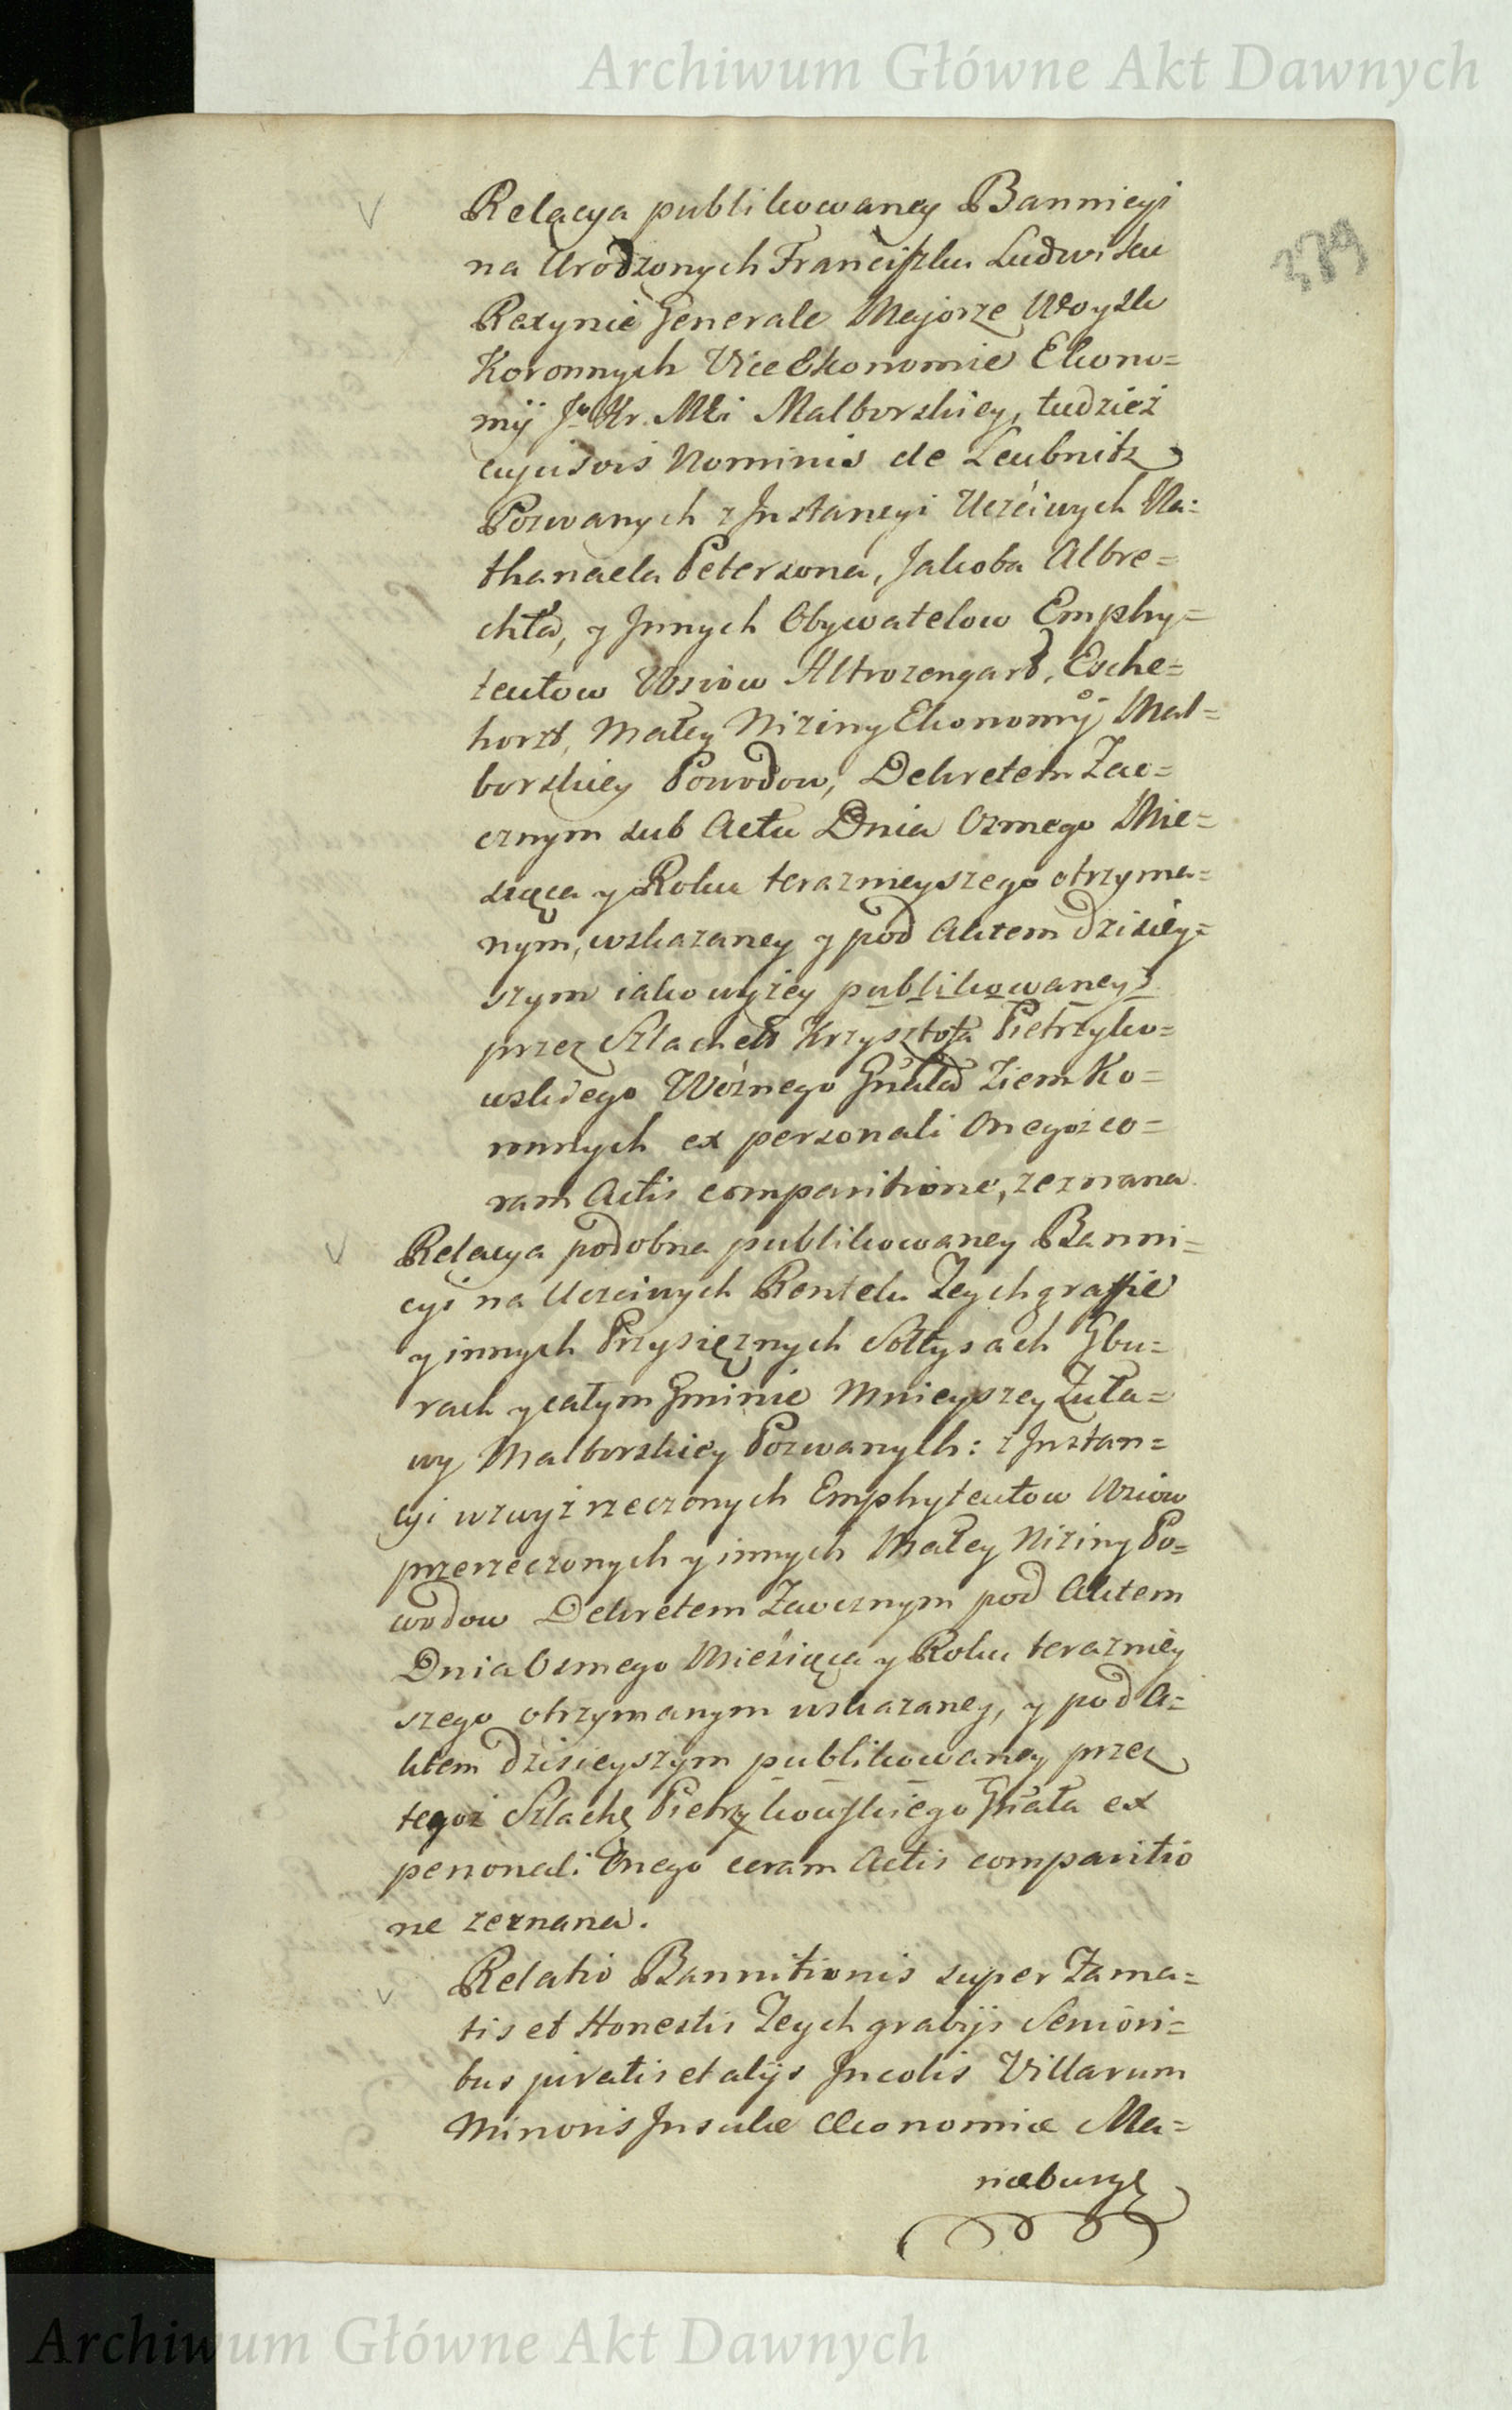 Archiwum Główne Akt Dawnych
389
Relacya publikowaney Bannicyi
na Urodzonych Franciszku Ludwiku
Rexynie Generale Majorze Woysk
Koronnych Vice Ekonomie Ekono=
mij Jo Kr. Mći Malborskiey, tudzież
cujusvis Nominis de Leubnitz
Pozwanych z Jnstancyi Uczciwych Na=
thanaela Petersona, Jakoba Albre=
chta, y Jnnych Obywatelow Emphy=
teutow Wsiow Altrozengard, Esche=
horst, Małey Niziny Ekonomij Mal=
borskiey Powodow, Dekretem Zao=
cznym sub Actu Dnia Osmego Mie=
siąca y Roku teraznieyszego otrzyma=
nym, wskazaney y pod Aktem dzisiey=
szym iako wyżey publikowaney
przez Szlachet Krzysztofa Pietrzyko=
wskiego Woźnego Gnała Ziem Ko=
ronnych ex personali Onegoż co=
ram Actis comparitione, zeznana
Relacya podobna publikowaney Banni=
cyi na Uczciwych Rentelu Teychgraffie
y innych Przysięznych Sołtysach Gbu=
rach y całym Gminie Mnieyszey Zuła=
wy Malborskiey Pozwanych: z Jnstan=
cyi wzwyż rzeczonych Emphyteutow Wsiow
przerzeczonych y innych Małey Niziny Po=
wodow Dekretem Zaocznym pod Aktem
Dnia Osmego Miesiąca y Roku teraźniey
szego otrzymanym wskazaney, y pod A=
ktem dzisieyszym publikowaney przez
tegoż Szlachę Pietrzykowskiego Gnała ex
personali Onego coram Actis comparitio
ne zeznana.
Relatio Bannitionis super Fama=
tis et Honestis Teychgrabijs Seniori=
bus juratis et alijs Jncolis Villarum
Minoris Jnsulæ Œconomiæ Ma=
riæburg
Archiwum Główne Akt Dawnych